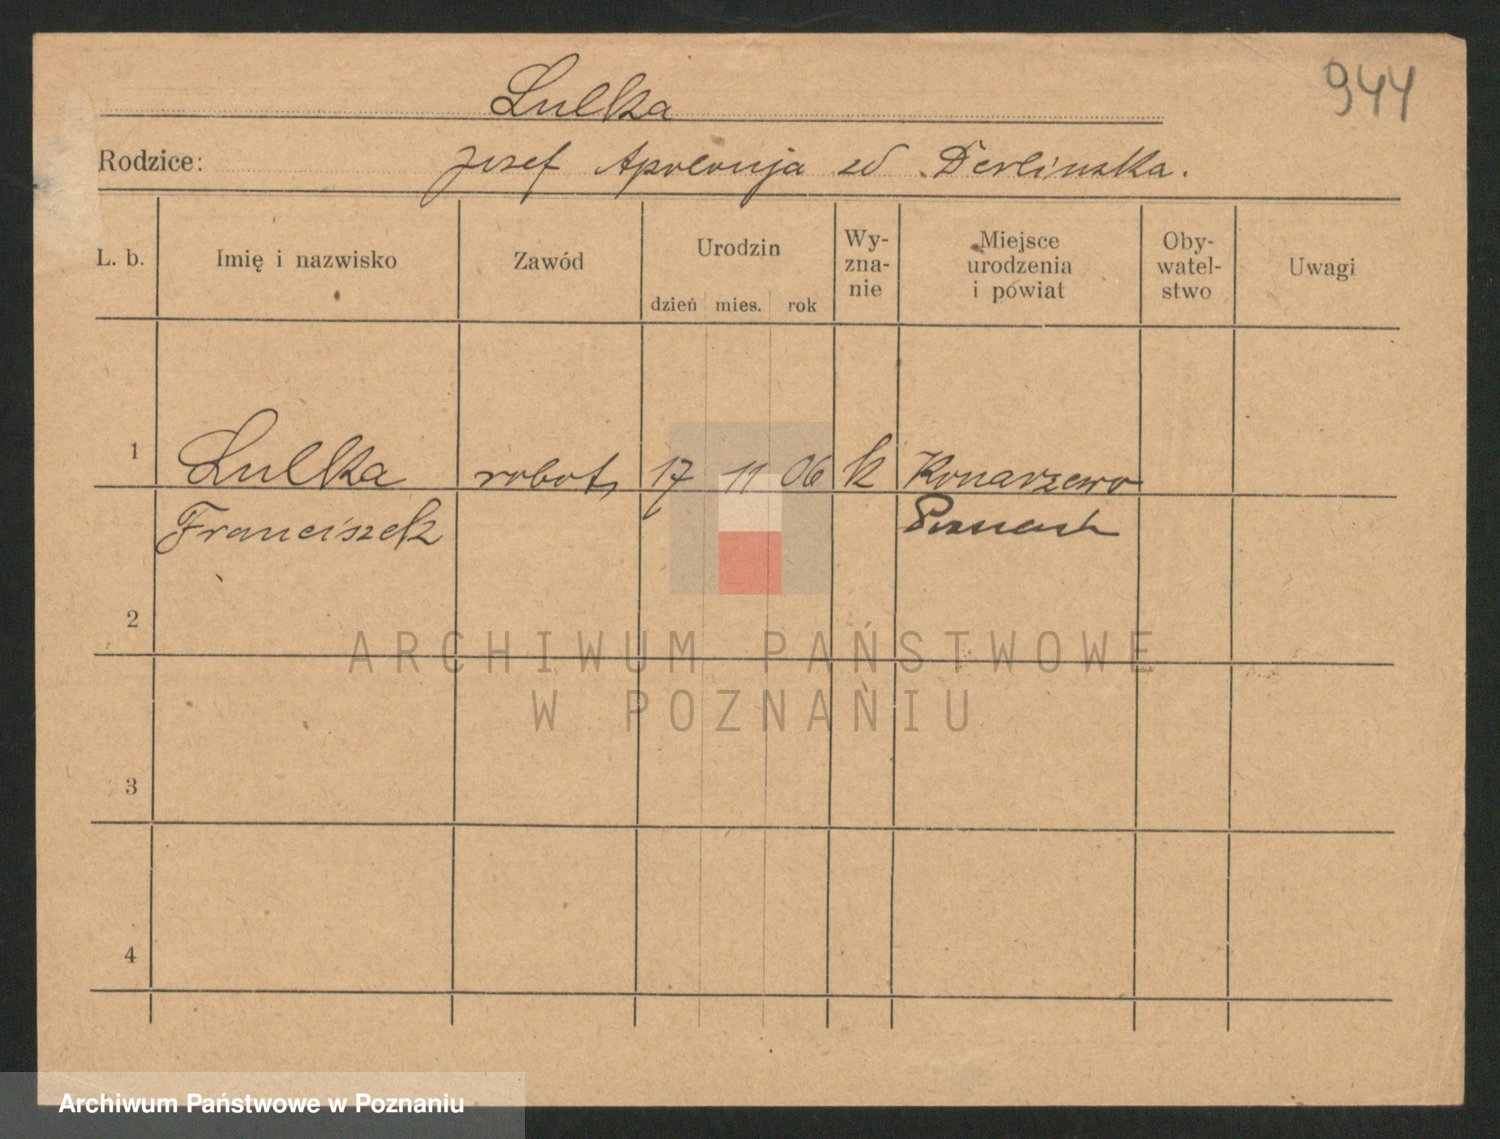 944
Lulka
Rodzice: Jozef Apolonja zd Derlinska.
L. b. Imię i nazwisko Zawód Urodzin dzień mies. rok Wy-zna-nie Miejsce urodzenia i powiat Oby-watel-stwo Uwagi
1 Lulka robotn 17 11 06 k Konarzewo
Franciszek
2
3
4
ARCHIWUM PAŃSTWOWE
W POZNANIU
Archiwum Państwowe w Poznaniu